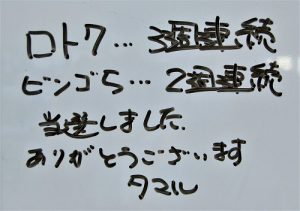 ロト7… 3週連続
ビンゴ5… 2週連続
当選しました.
ありがとうございます
タマル